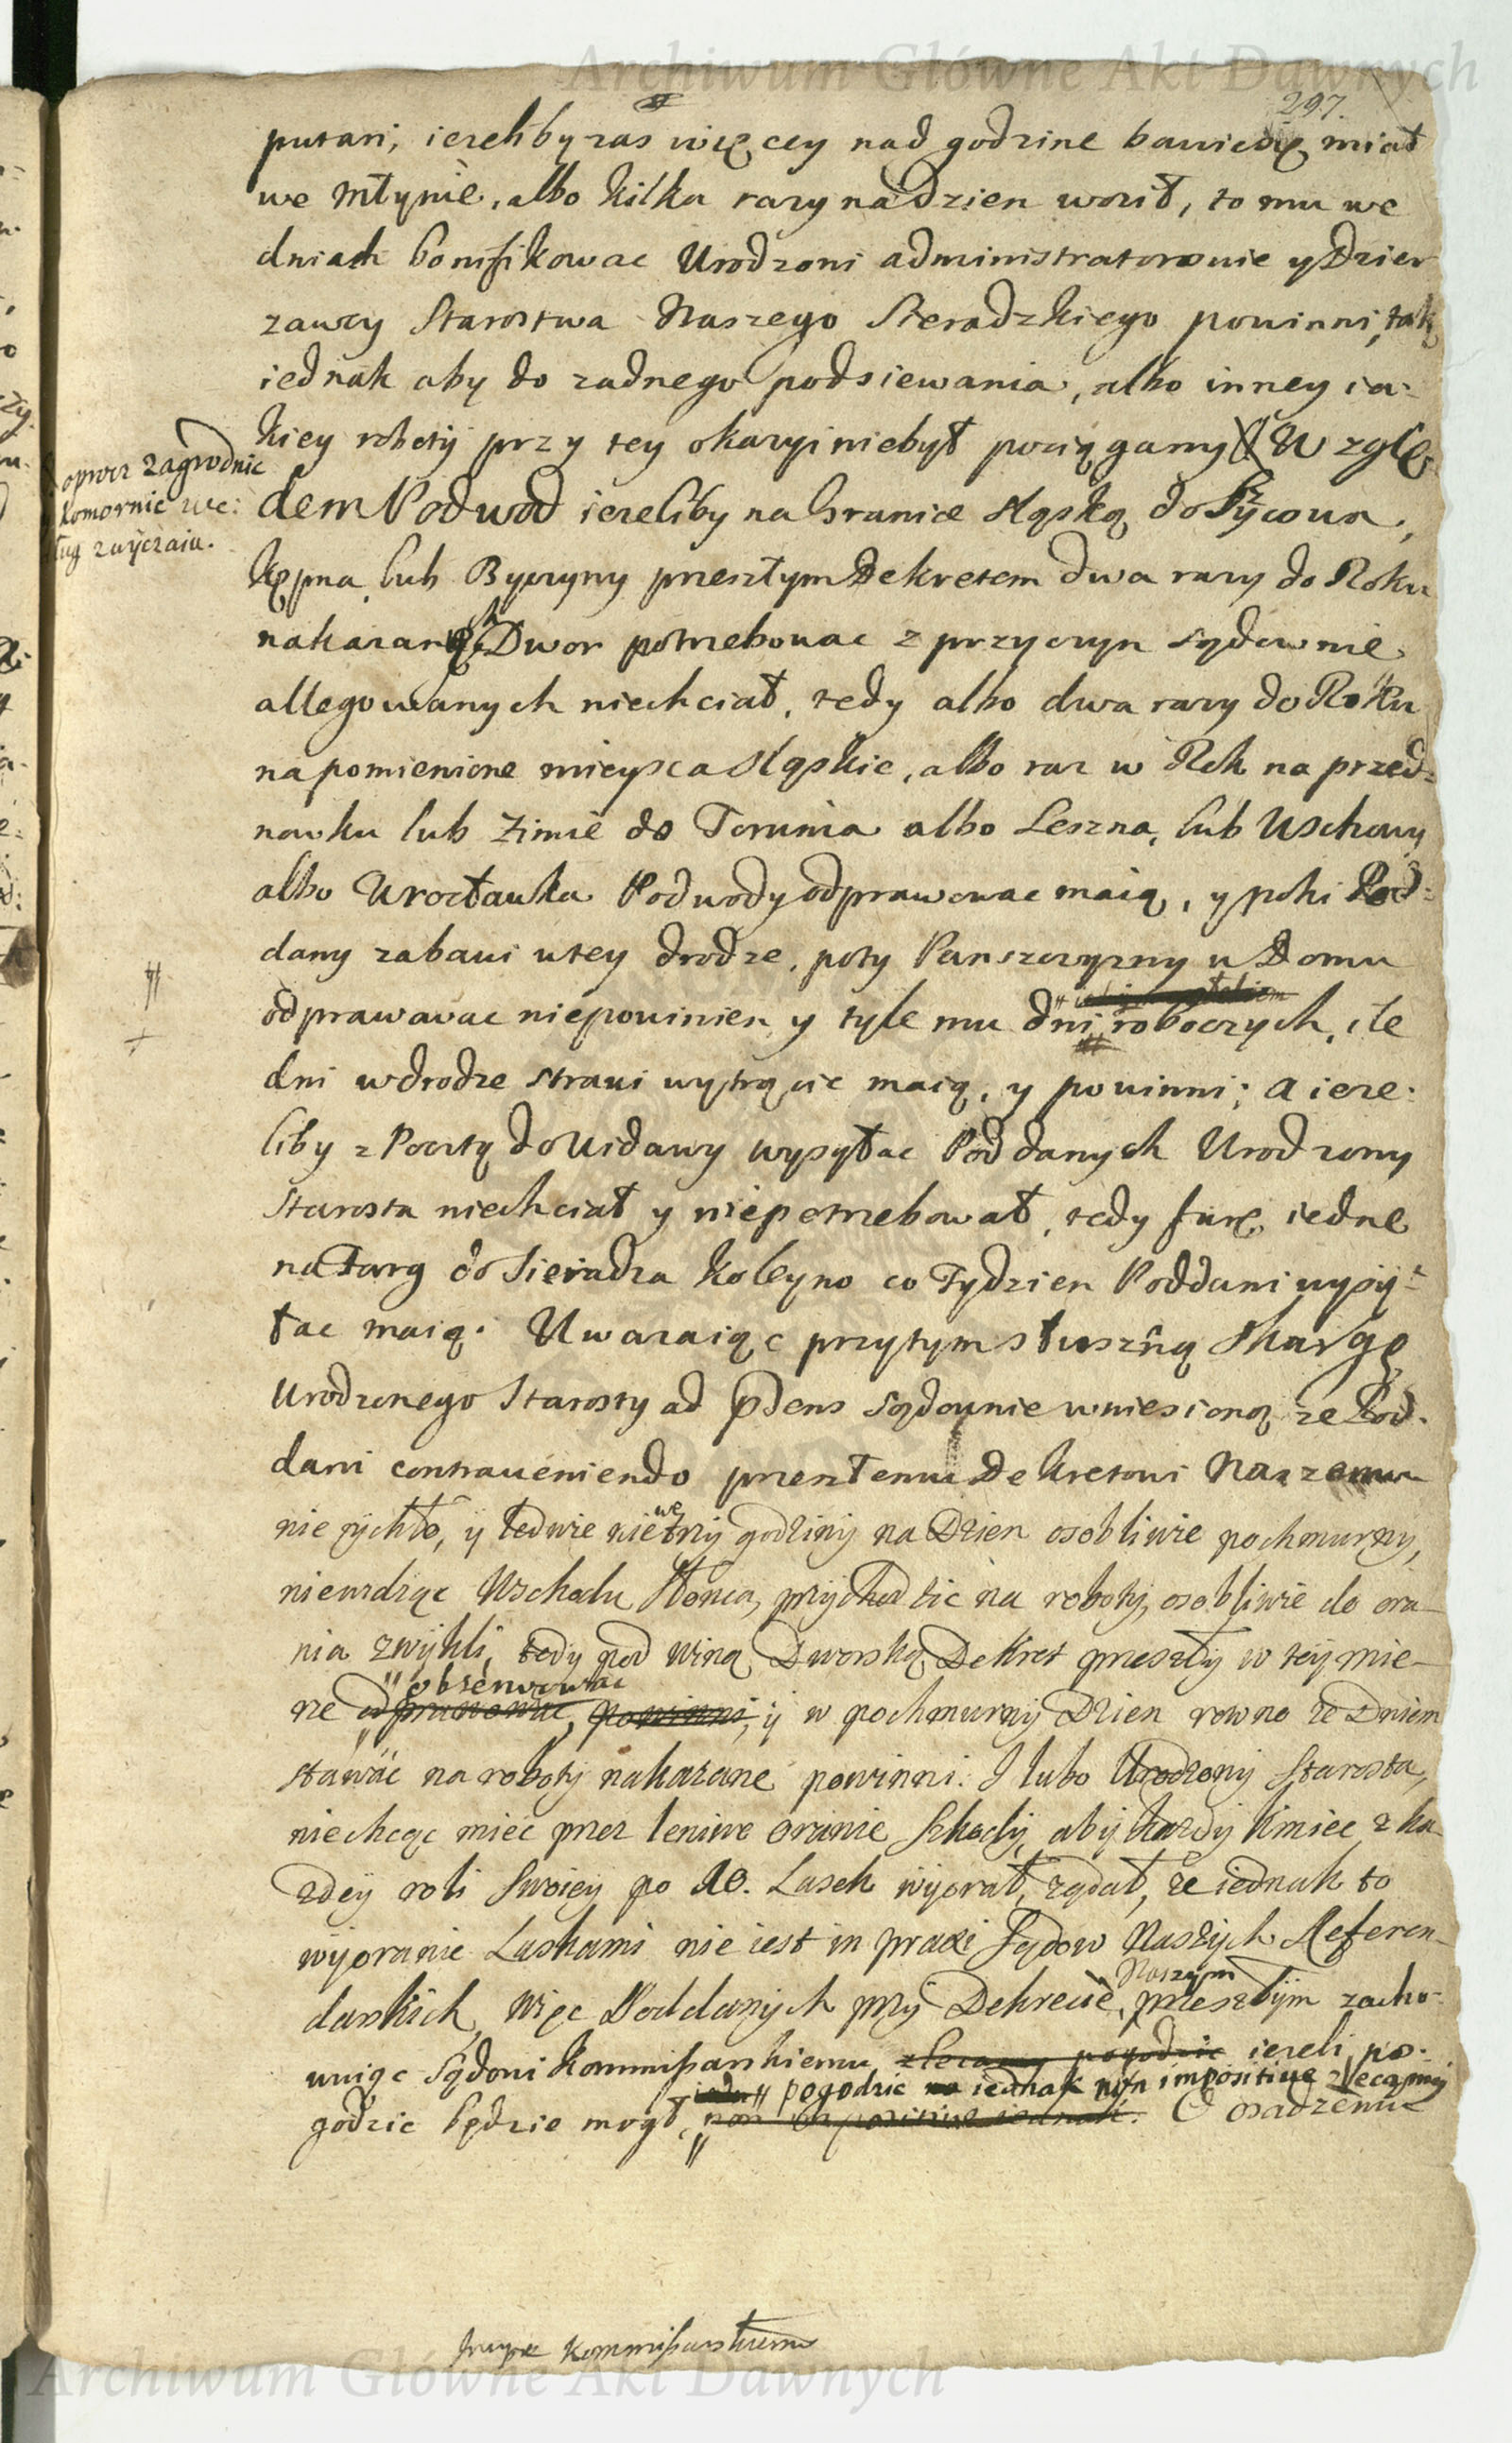 Archiwum Główne Akt Dawnych
297.
putari, iezeliby zas więcey nad godzine bawic się miał
we Młynie, albo kilka razy na dzien woził, to mu we
dniach bonifikowac Urodzoni administratorowie y Dzier
zawcy Starostwa Naszego Sieradzkiego powinni, tak
iednak aby do zadnego podsiewania, albo inney ia-
kiey roboty przy tey okazyi niebył pociągany W zglę
oprocz zagrodnic
komornic we:
ług zwyczaiu.
dem Podwod iezeliby na Granice sląską do Sycowa,
Kępna, lub Byczyny przeszłym Dekretem dwa razy do Roku
nakazanych Dwor potrzebowac z przyczyn sądownie
allegowanych niechciał, tedy albo dwa razy do Roku
na pomienione mieysca sląskie, albo raz w Rok na przed=
nowku lub Zimie do Torunia albo Leszna, lub Uschowy
albo Wrocławka Podwody odprawowac maią, y poki Pod=
dany zabawi w tey drodze, poty Panszczyzny w Domu
odprawowac niepowinien y tyle mu dni roboczych, ile
dni w drodze strawi wytrącic maią, y powinni; a ieze:
liby z Pocztą do Widawy wysyłac Poddanych Urodzony
Starosta niechciał y niepotrzebował, tedy furę iedne
na Targ do Sieradza koleyno co Tydzien Poddani wysy=
łac maią. Uwazaiąc przytym słuszną skargę
Urodzonego Starosty ad pdens sądownie wniesioną ze Pod-
dani contraveniendo przeszłemu Dekretowi Naszemu
nie rychło, y ledwie nie we trzy godziny na Dzien osobliwie pochmurny,
niewidząc Wschodu słonca, przychodzic na roboty, osobliwie do ora-
nia zwykli, tedy pod winą Dworską Dekret przeszły w tey mie-
rze odprawowac, powinni, y w pochmurny Dzien rowno ze Dniem
observowac
stawac na roboty nakazane powinni. I lubo Urodzony Starosta,
niechcąc miec przez leniwe oranie szkody, aby kazdy kmiec z ka-
zdey roli swoiey po 10. Lasek wyorał, ządał, ze iednak to
wyoranie Laskami nie iest in praxi Sądow Naszych Referen-
darskich, więc Poddanych przy Dekrecie Naszym przeszłym zacho-
wuiąc Sądowi Kommissarskiemu zlecamy pogodzic iezeli po-
pogodzic iednak non impositive zlecamy
godzic będzie mogł, non impositive iednak. O osadzeniu
Kommissarskiemu
Archiwum Główne Akt Dawnych